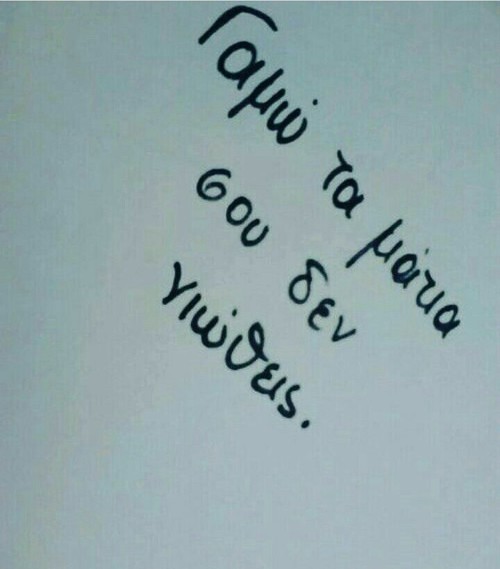 Γαμώ τα μάτια
σου δεν
γιώθεις.